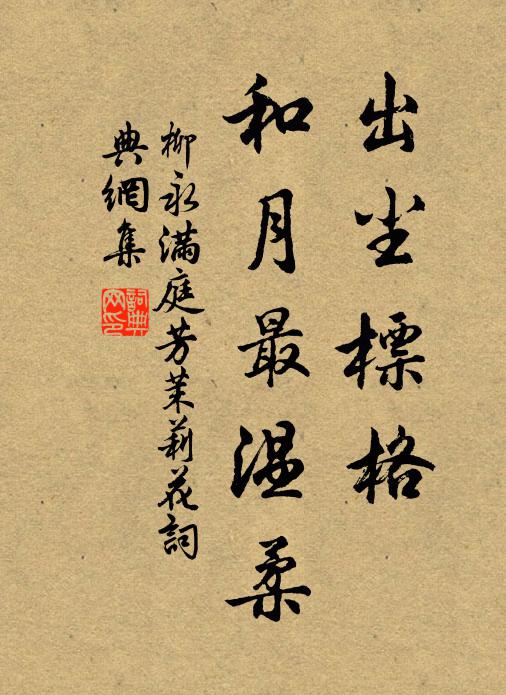 出尘標格
和月最温柔
柳永滿庭芳茉莉花詞
典網集
詞典網印